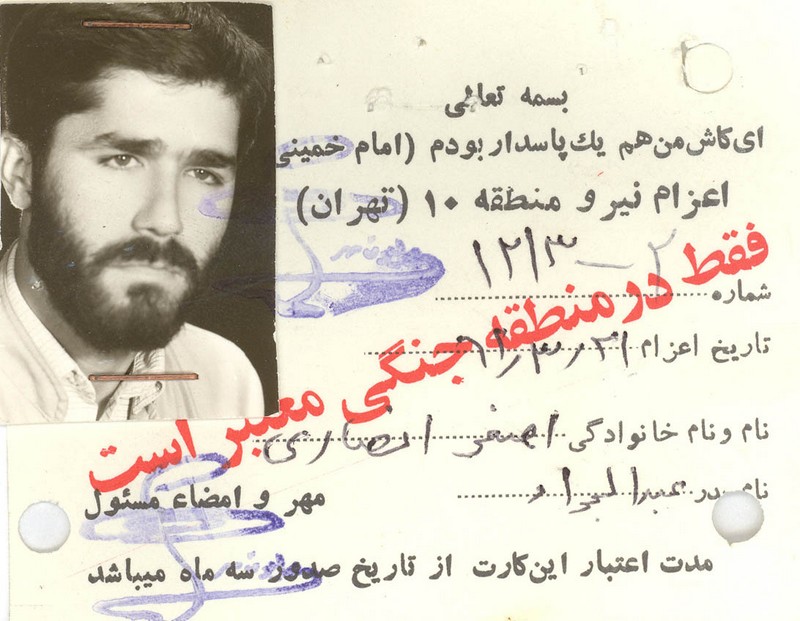 بسمه تعالی
ای کاش من هم یك پاسدار بودم (امام خمینی
اعزام نیرو منطقه ۱۰ (تهران)
شماره ۱۲۱۳-۲
تاریخ اعزام ۶۱/۳/۳۱
نام و نام خانوادگی اصغر انصاری
نام پدر عبدالجواد
مهر و امضاء مسئول
مدت اعتبار این کارت از تاریخ صدور سه ماه میباشد
فقط در منطقه جنگی معتبر است